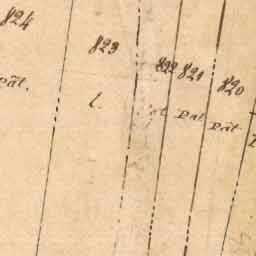 824
823
822 821
820
Pat.
l.
Pat
Pat.